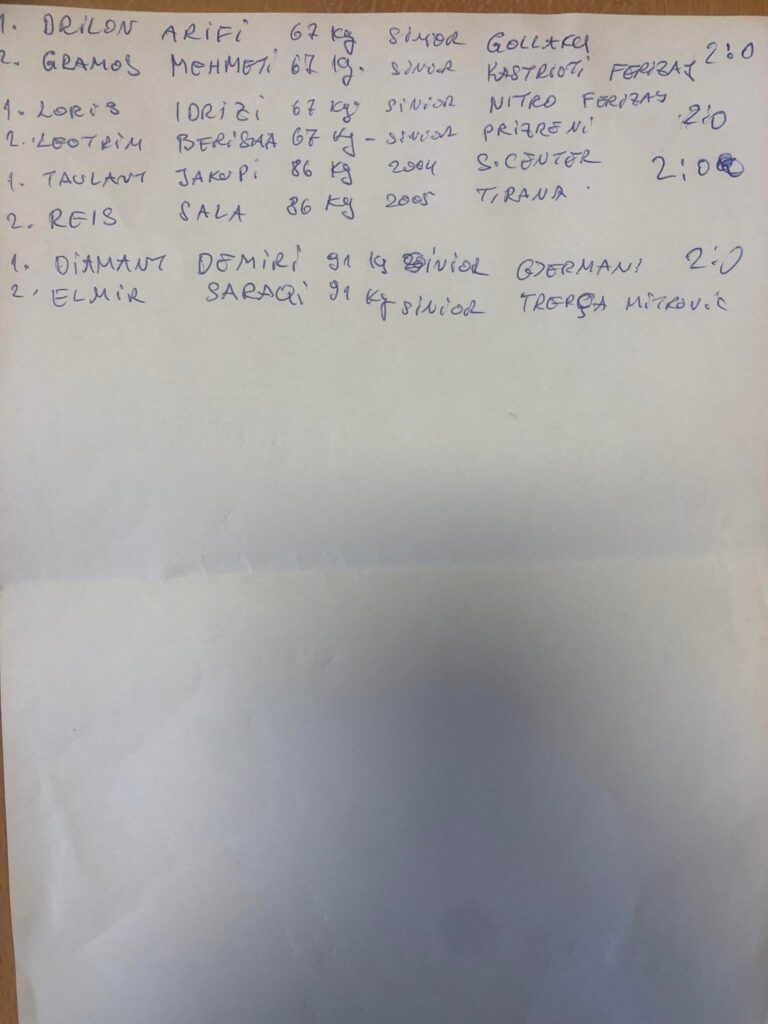 1. DRILON ARIFI 67 kg SINIOR GOLLAKU 2:0
2. GRAMOS MEHMETI 67 kg. SINIOR KASTRIOTI FERIZAJ
1. LORIS IDRIZI 67 kg SINIOR NITRO FERIZAJ 2:0
2. LEOTRIM BERISHA 67 kg - SINIOR PRIZRENI
1. TAULANT JAKUPI 86 kg 2004 S.CENTER 2:0
2. REIS SALA 86 kg 2005 TIRANA
1. DIAMANT DEMIRI 91 kg SINIOR GJERMANI 2:0
2. ELMIR SARAQI 91 kg SINIOR TREPÇA MITROVIC